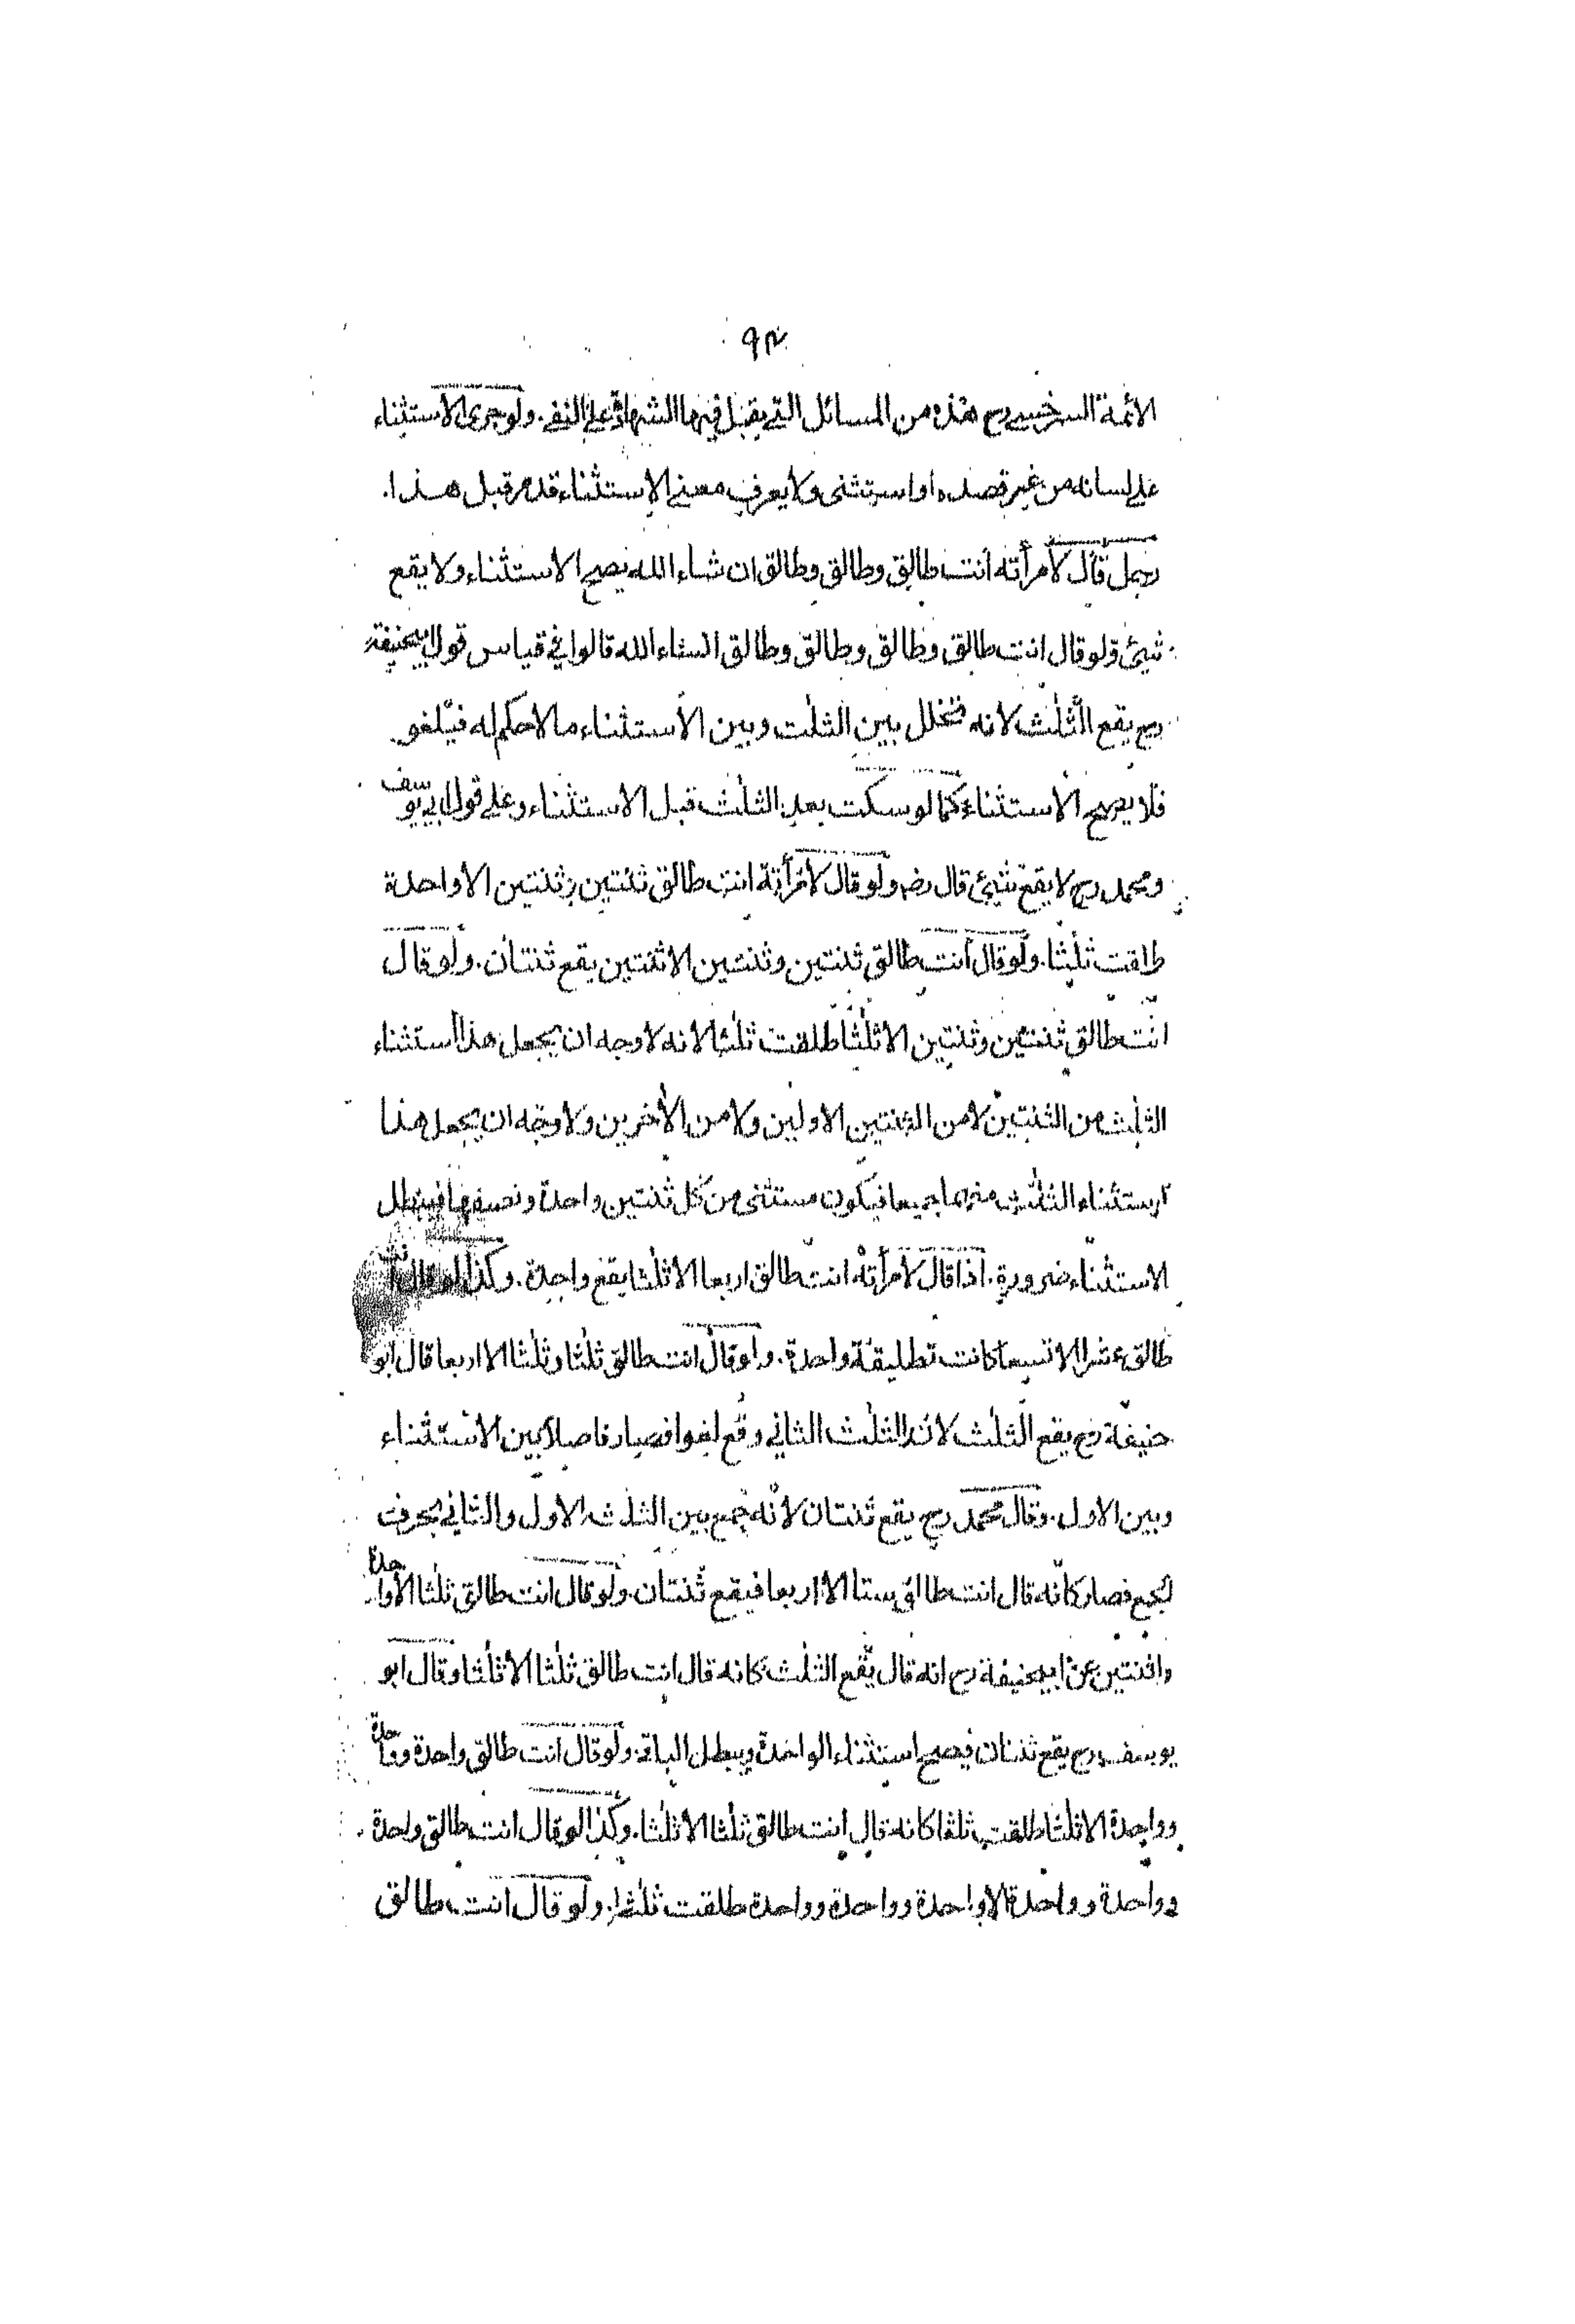 ٩٣
الائمة السرخسي رح هذه من المسائل التي يقبل فيها الشهادة على النفي. ولو جرى الاستثناء
على لسانه من غير قصده او استثنى ولا يعرف معنى الاستثناء قد مر قبل هذا.
رجل قال لامرأته انت طالق وطالق وطالق ان شاء الله يصح الاستثناء ولا يقع
شيئ ولو قال انت طالق وطالق وطالق وطالق انشاء الله قالوا في قياس قول ابيحنيفة
رح يقع الثلث لانه تخلل بين الثلث وبين الاستثناء ما لا حكم له فيلغو
فلا يصح الاستثناء كما لو سكت بعد الثلث قبل الاستثناء وعلى قول ابي يوسف
ومحمد رح لا يقع شيئ قال رضه ولو قال لامرأته انت طالق ثنتين وثنتين الا واحدة
طلقت ثلثا. ولو قال انت طالق ثنتين وثنتين الا ثنتين يقع ثنتان. ولو قال
انت طالق ثنتين وثنتين الا ثلثا طلقت ثلثا لانه لا وجه ان يجعل هذا استثناء
الثلث من الثنتين لا من الثنتين الاولين ولا من الأخرين ولا وجه ان يجعل هذا
استثناء الثلث منهما جميعا فيكون مستثنى من كل ثنتين واحدة ونصفها فيبطل
الاستثناء ضرورة. اذا قال لامرأته انت طالق اربعا الا ثلثا يقع واحدة. وكذا لو قال انت
طالق عشرا الا تسعا كانت تطليقة واحدة. ولو قال انت طالق ثلثا وثلثا الا اربعا قال ابو
حنيفة رح يقع الثلث لان الثلث الثاني وقع لغوا فصار فاصلا بين الاستثناء
وبين الاول. وقال محمد رح يقع ثنتان لانه جمع بين الثلث الاول والثاني بحرف
الجمع فصار كانه قال انت طالق ستا الا اربعا فيقع ثنتان. ولو قال انت طالق ثلثا الا واحدة
وثنتين عن ابيحنيفة رح انه قال يقع الثلث كانه قال انت طالق ثلثا الا ثلثا وقال ابو
يوسف رح يقع ثنتان فيصح استثناء الواحدة ويبطل الباقي. ولو قال انت طالق واحدة وواحدة
وواحدة الا ثلثا طلقت ثلثا كانه قال انت طالق ثلثا الا ثلثا. وكذا لو قال انت طالق واحدة
وواحدة وواحدة الا واحدة وواحدة وواحدة طلقت ثلثا. ولو قال انت طالق